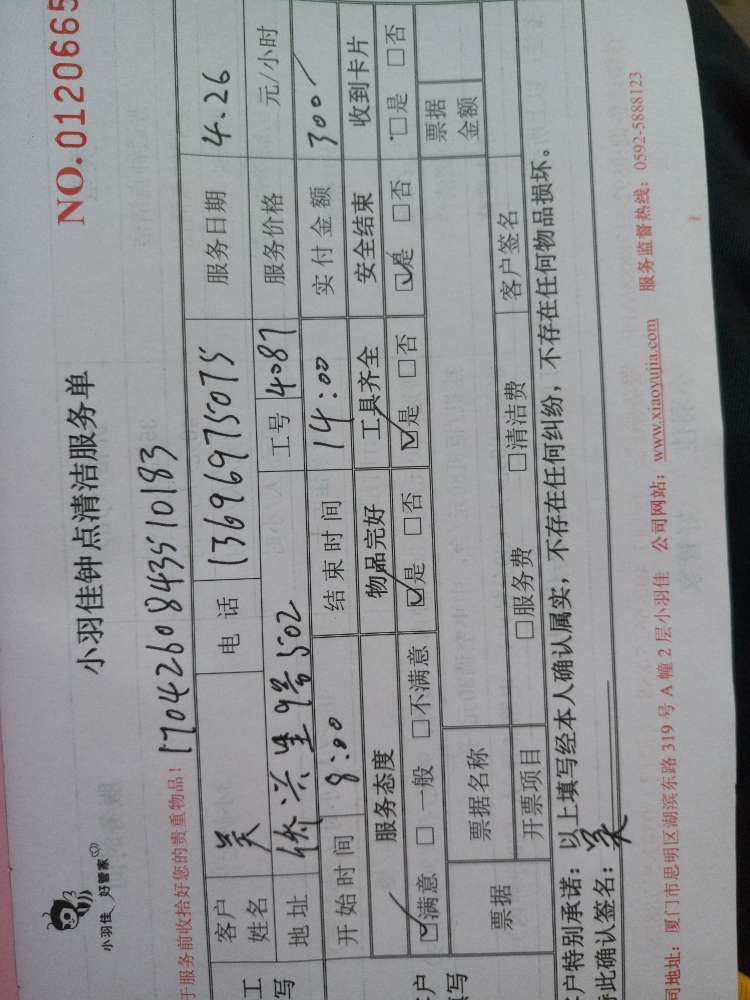 小羽佳 好管家
小羽佳钟点清洁服务单
NO.0120665
于服务前收拾好您的贵重物品！
1704260843510183
客户姓名 吴 电话 13696975075 服务日期 4.26
地址 侨兴里9号502 工号 4087 服务价格 元/小时
开始时间 8:00 结束时间 14:00 实付金额 300
服务态度 物品完好 工具齐全 安全结束 收到卡片
☑满意 □一般 □不满意 ☑是 □否 ☑是 □否 ☑是 □否 □是 □否
票据 票据名称 票据金额
开票项目 □服务费 □清洁费 客户签名
户特别承诺：以上填写经本人确认属实，不存在任何纠纷，不存在任何物品损坏。
此确认签名：吴
司地址：厦门市思明区湖滨东路319号A幢2层小羽佳 公司网站：www.xiaoyujia.com 服务监督热线：0592-5888123